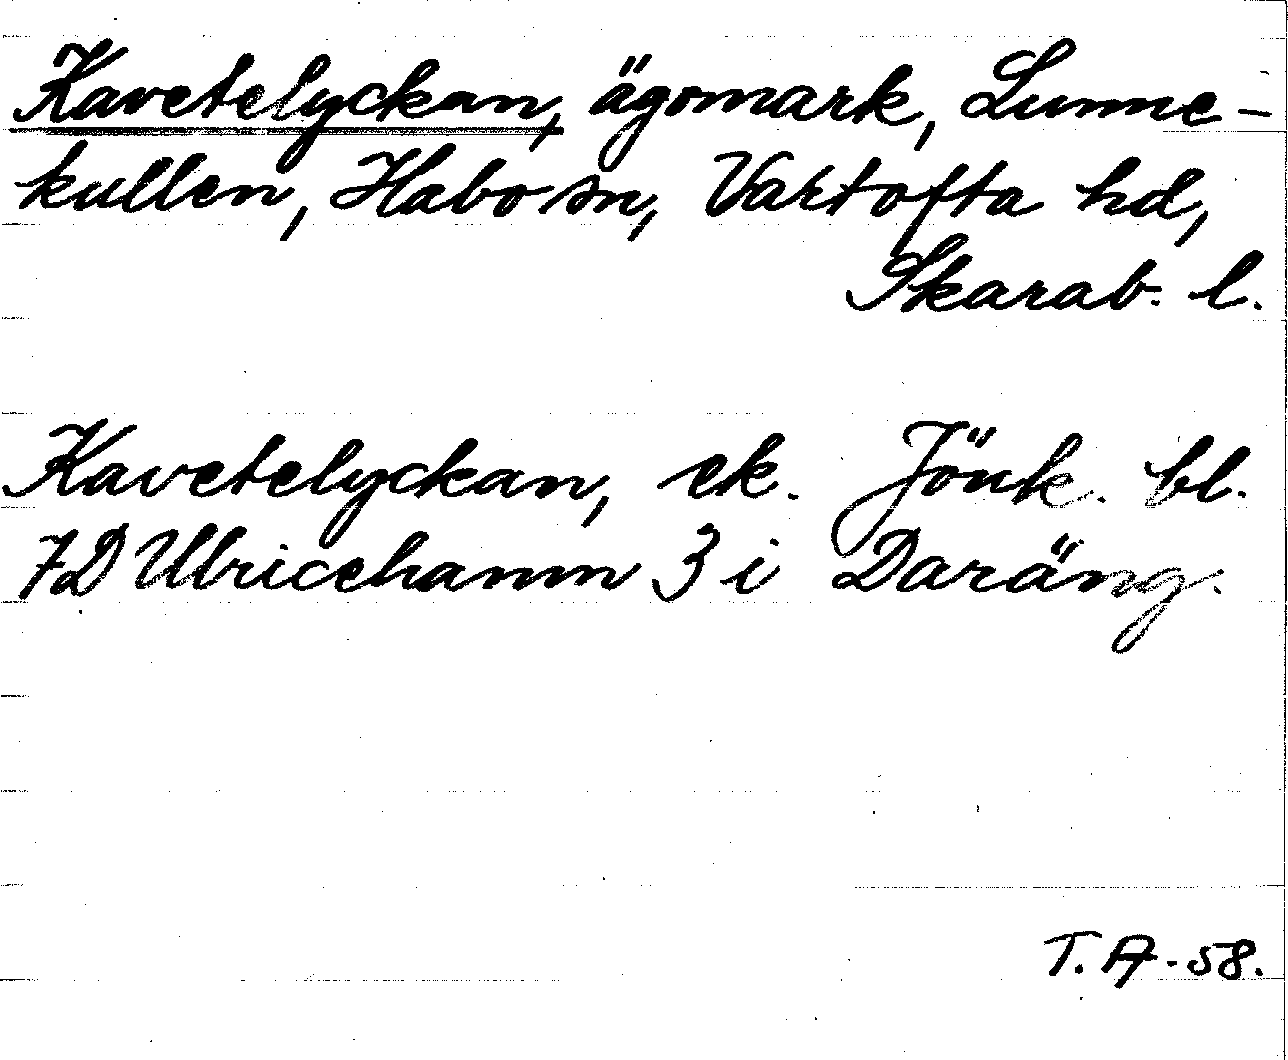 Kavetelyckan, ägomark, Lunne-
kullen, Habo sn, Vartofta hd,
Skarab. l.
Kavetelyckan, ek. Jönk. bl.
7D Ulricehamn 3 i Daräng.
T. A -58.